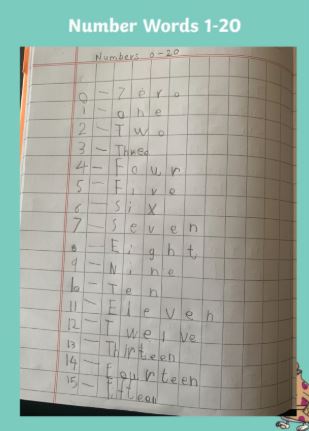 Number Words 1-20
Numbers 0-20
0 - Zero
1 - one
2 - Two
3 - Three
4 - Four
5 - Five
6 - Six
7 - Seven
8 - Eight
9 - Nine
10 - Ten
11 - Eleven
12 - Twelve
13 - Thirteen
14 - Fourteen
15 - fifteen